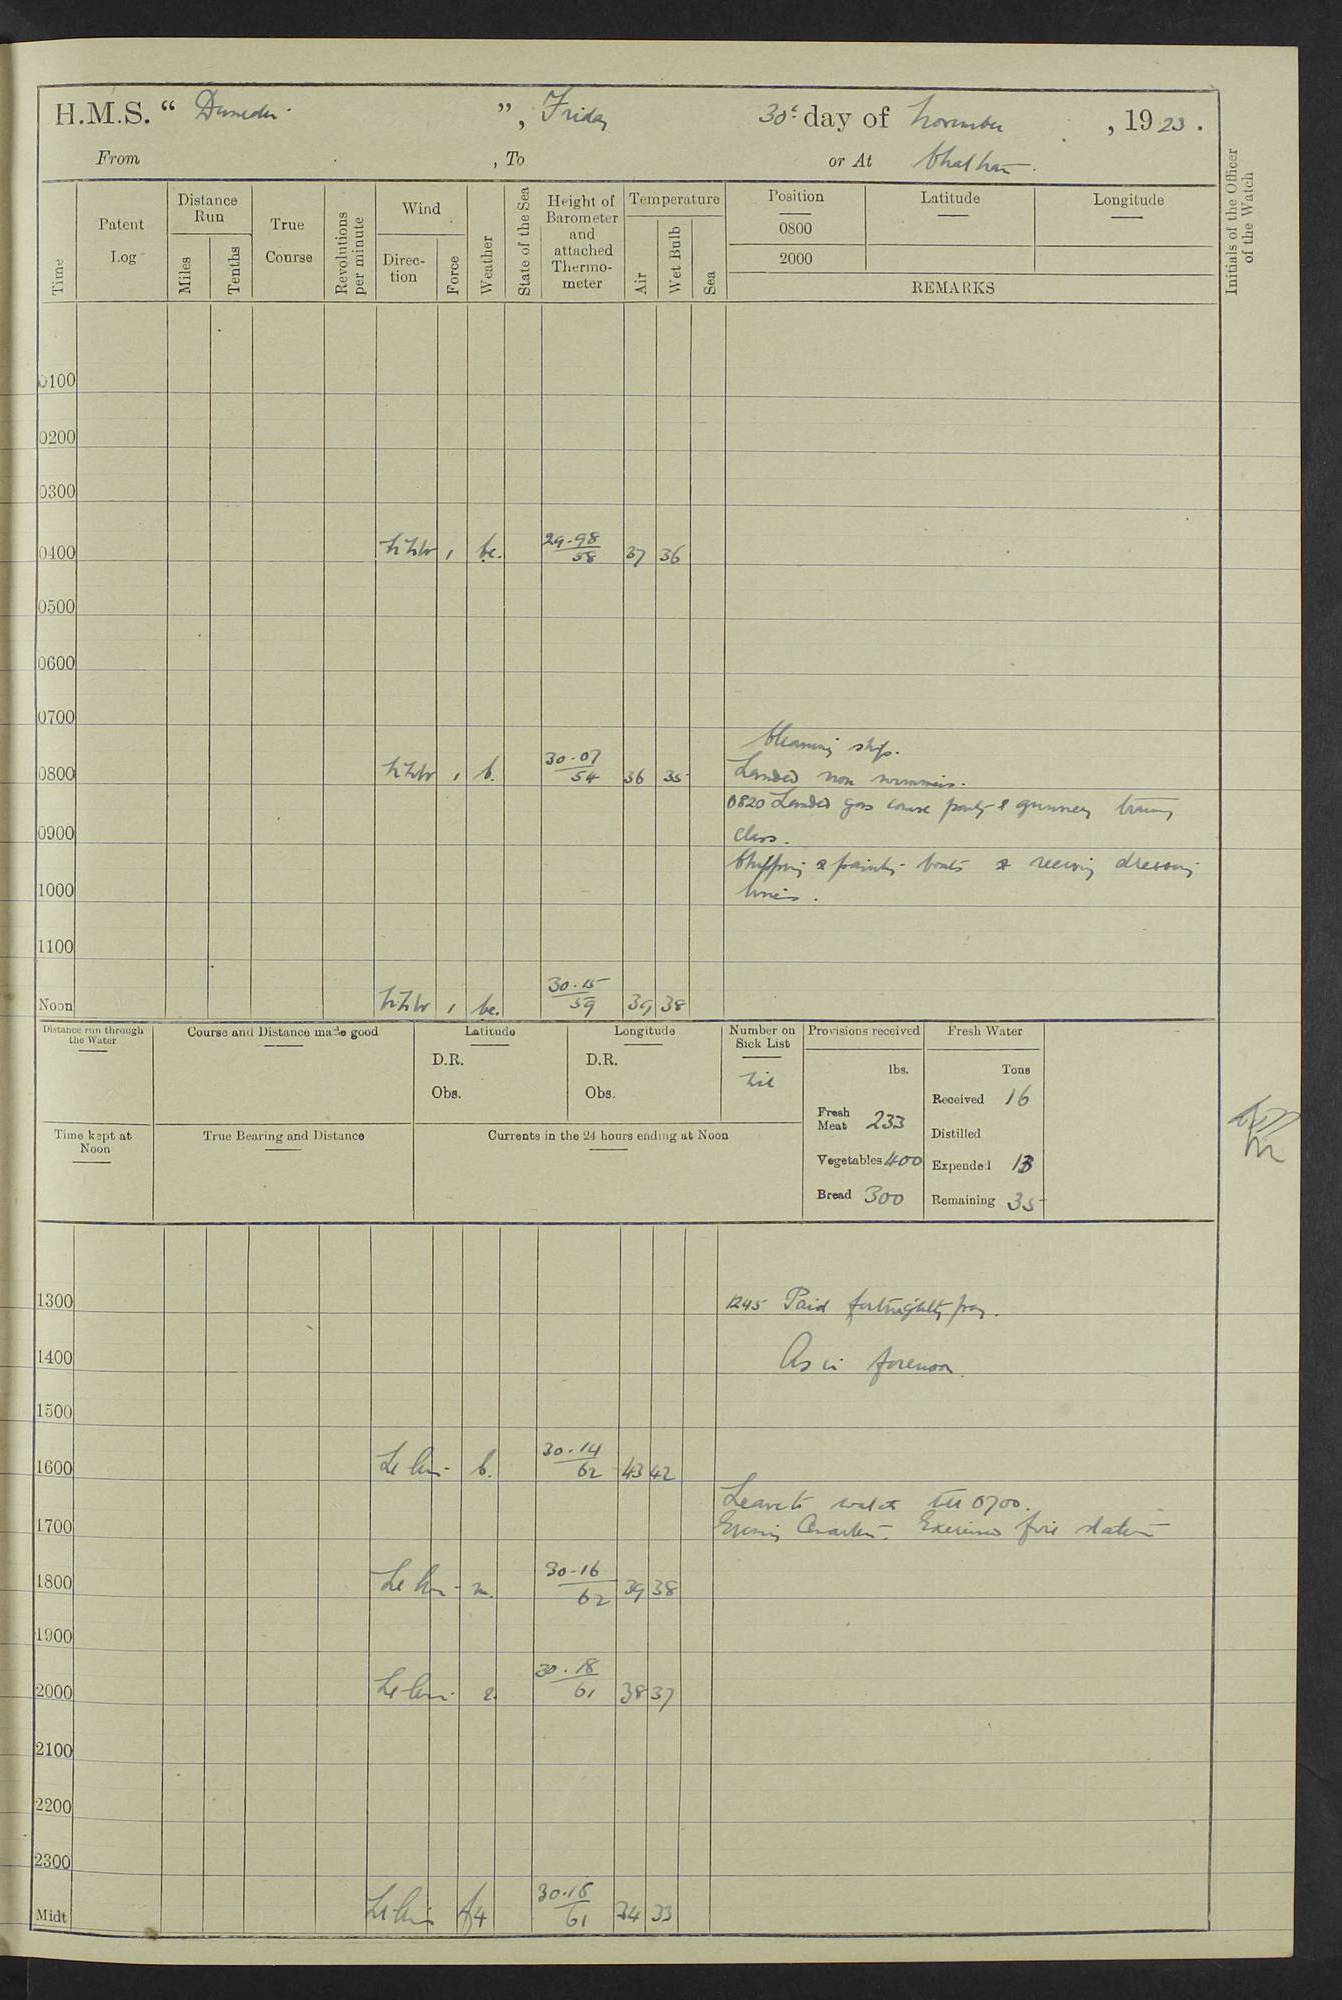 H.M.S. “ Dunedin ”, Friday 30th day of November, 1923.
From , To or At Chatham.
Time
Patent Log
Distance Run
Miles
Tenths
True Course
Revolutions per minute
Wind
Direction
Force
Weather
State of the Sea
Height of Barometer and attached Thermometer
Temperature
Air
Wet Bulb
Sea
Position
0800
2000
Latitude
Longitude
REMARKS
Initials of the Officer of the Watch
0100
0200
0300
0400 NNW 1 bc. 29.98 58 37 36
0500
0600
0700
Cleaning ship.
0800 NNW 1 b. 30.07 54 36 35
Landed non swimmers.
0820 Landed gas course party & gunnery training
0900 class.
Chipping & painting boats & reeving dressing
1000 lines.
1100
Noon NNW 1 bc. 30.15 59 39 38
Distance run through the Water
Course and Distance made good
Latitude
D.R.
Obs.
Longitude
D.R.
Obs.
Number on Sick List
Nil
Provisions received
lbs.
Fresh Meat 233
Vegetables 400
Bread 300
Fresh Water
Tons
Received 16
Distilled
Expended 13
Remaining 35
Time kept at Noon
True Bearing and Distance
Currents in the 24 hours ending at Noon
1300 1245 Paid fortnightly pay.
1400 As in forenoon
1500
1600 Lt airs b. 30.14 62 43 42
Leave to watch till 0700.
1700 Evening Quarters. Exercised fire stations
1800 Lt airs m. 30.16 62 39 38
1900
2000 Lt airs 30.18 61 38 37
2100
2200
2300
Midt Lt airs f4 30.16 61 34 33